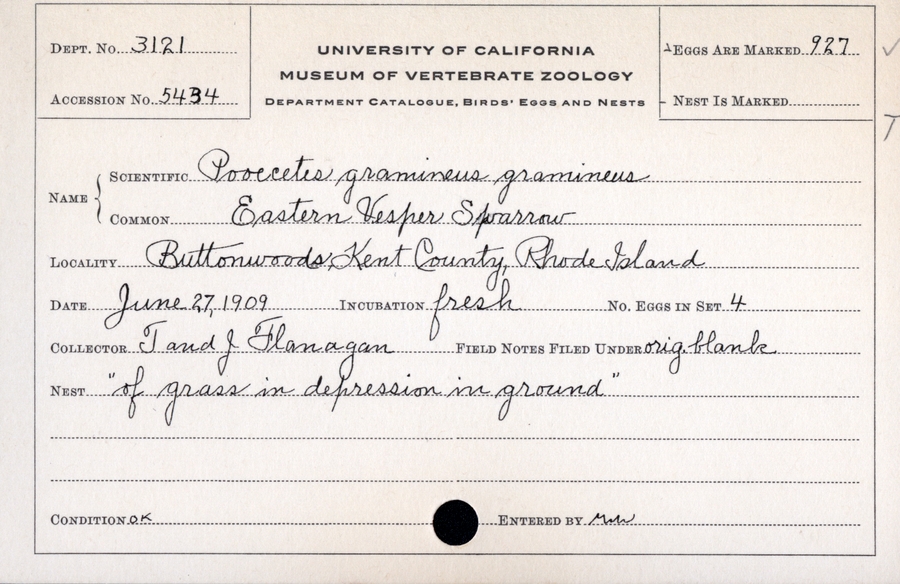 DEPT. NO. 3121
ACCESSION NO. 5434
UNIVERSITY OF CALIFORNIA
MUSEUM OF VERTEBRATE ZOOLOGY
DEPARTMENT CATALOGUE, BIRDS' EGGS AND NESTS
EGGS ARE MARKED 927
NEST IS MARKED
NAME
SCIENTIFIC Pooecetes gramineus gramineus
COMMON Eastern Vesper Sparrow
LOCALITY Buttonwoods, Kent County, Rhode Island
DATE June 27, 1909 INCUBATION fresh NO. EGGS IN SET 4
COLLECTOR T and J Flanagan FIELD NOTES FILED UNDER orig. blank
NEST "of grass in depression in ground"
CONDITION OK ENTERED BY